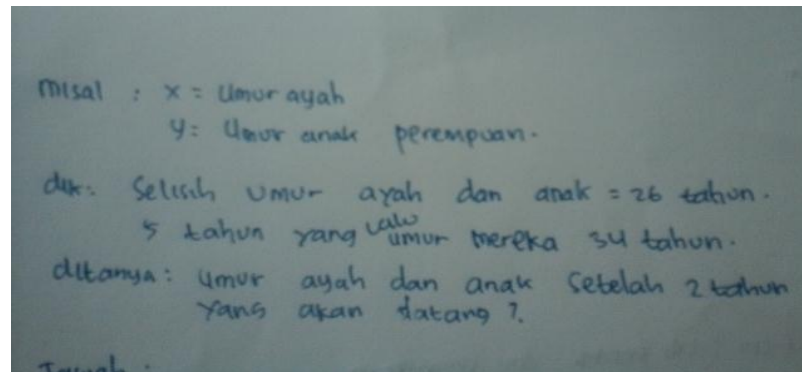 misal : x = Umur ayah
y = Umur anak perempuan.
dik: Selisih umur ayah dan anak = 26 tahun.
5 tahun yang lalu umur mereka 34 tahun.
ditanya : umur ayah dan anak setelah 2 tahun
yang akan datang ?
Jawab :